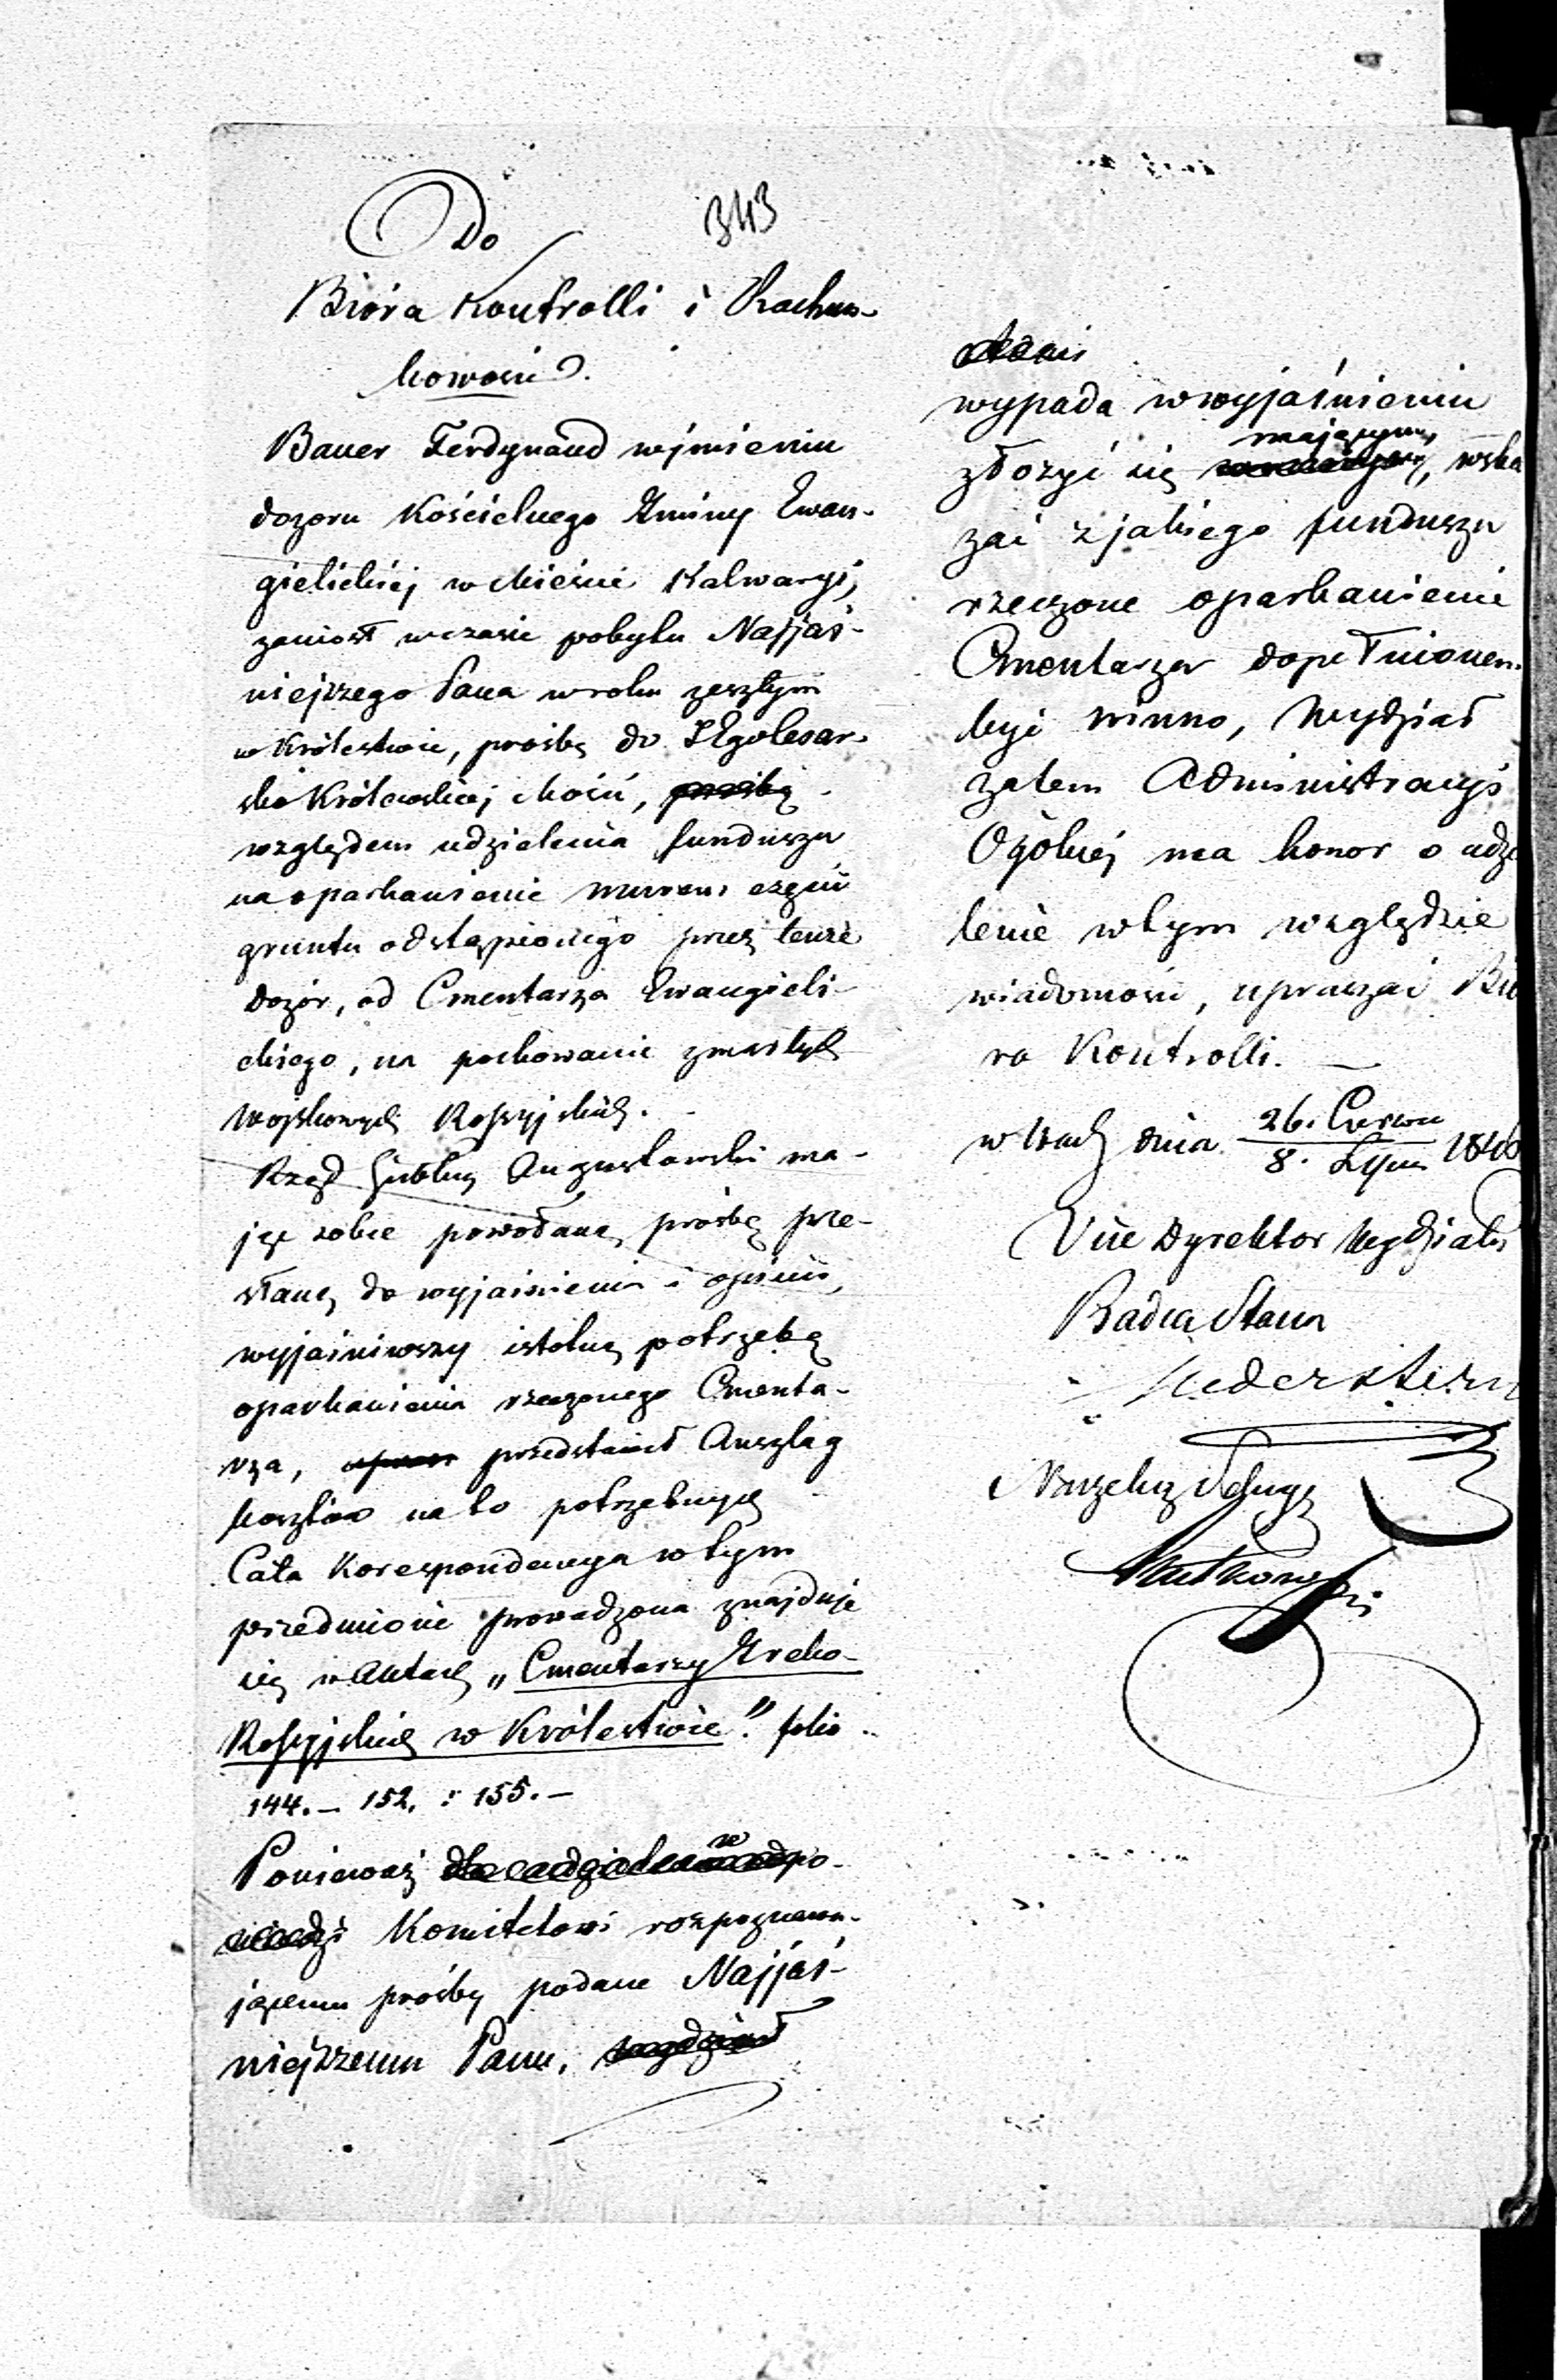 343
Do
Bióra Kontrolli i Rachun-
kowości.
Bauer Ferdynand wjmieniu
dozoru Kościelnego Gminy Ewan-
gielickiej w Mieście Kalwaryi,
zaniosł wczasie pobytu Najjaś-
niejszego Pana wroku zeszłym
w Królestwie, prośbę do JEgo Cesar-
sko Królewskiej Mości, prośbę
względem udzielenia funduszu
na oparkanienie murem części
gruntu odstąpionego przez tenże
Dozór, od Cmentarza Ewangieli-
ckiego, na pochowanie zmarłych
Wojskowych Rossyjskich.
Rząd Gubny Augustowski ma-
jąc sobie powołaną prośbę prze-
słaną do wyjaśnienia i opinii,
wyjaśniwszy istotną potrzebę
oparkanienia rzeczonego Cmenta-
rza, przedstawił Anszlag
kosztów na to potrzebnych
Cała Korespondencya w tym
przedmiocie prowadzona znajduje
się w Aktach „Cmentarzy Greko-
Rossyjskich w Królestwie". folio
144. – 152. : 155. –
Ponieważ dla udzielenia odpo-
wiedzi Komitetowi rozpoznawa-
jącemu prośby podane Najjaś-
niejszemu Panu, wydział
wypada wwyjaśnieniu
mającym
złożyć się, wska
zać zjakiego funduszu
rzeczone oparkanienie
Cmentarza dopełnionem
być winno, Wydział
zatem Administracyi
Ogólnej ma honor o udzie
lenie wtym względzie
wiadomości, upraszać Bió
ra Kontrolli. —
w Wach dnia 26. Czerwca
8. Lipca 184
Vice Dyrektor Wydziału
Radca Stanu
Naczelnik Sekcyi